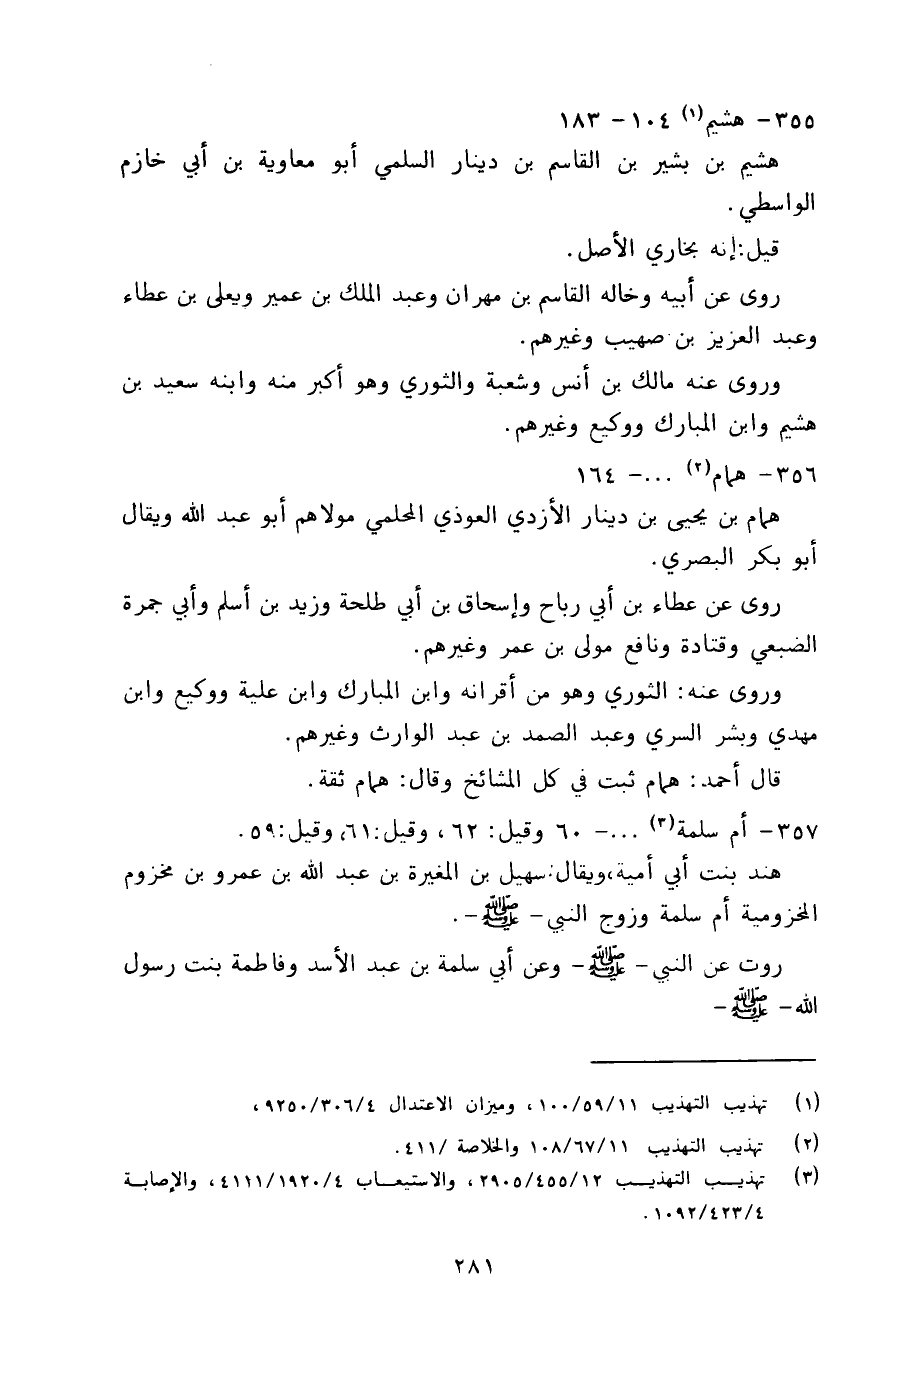 ٣٥٥- هشيم(١) ١٠٤ - ١٨٣
هشيم بن بشير بن القاسم بن دينار السلمي أبو معاوية بن أبي خازم
الواسطي.
قيل:إنه بخاري الأصل.
روى عن أبيه وخاله القاسم بن مهران وعبد الملك بن عمير ويعلى بن عطاء
وعبد العزيز بن صهيب وغيرهم.
وروى عنه مالك بن أنس وشعبة والثوري وهو أكبر منه وابنه سعيد بن
هشيم وابن المبارك ووكيع وغيرهم.
٣٥٦- همام(٢) ...- ١٦٤
همام بن يحيى بن دينار الأزدي العوذي المحلمي مولاهم أبو عبد الله ويقال
أبو بكر البصري.
روى عن عطاء بن أبي رباح وإسحاق بن أبي طلحة وزيد بن أسلم وأبي جمرة
الضبعي وقتادة ونافع مولى بن عمر وغيرهم.
وروى عنه: الثوري وهو من أقرانه وابن المبارك وابن علية ووكيع وابن
مهدي وبشر السري وعبد الصمد بن عبد الوارث وغيرهم.
قال أحمد: همام ثبت في كل المشائخ وقال: همام ثقة.
٣٥٧- أم سلمة(٣) ...- ٦٠ وقيل: ٦٢، وقيل:٦١، وقيل:٥٩.
هند بنت أبي أمية،ويقال:سهيل بن المغيرة بن عبد الله بن عمرو بن مخزوم
المخزومية أم سلمة وزوج النبي- ﷺ-.
روت عن النبي- ﷺ- وعن أبي سلمة بن عبد الأسد وفاطمة بنت رسول
الله- ﷺ-
(١) تهذيب التهذيب ١٠٠/٥٩/١١، وميزان الاعتدال ٩٢٥٠/٣٠٦/٤،
(٢) تهذيب التهذيب ١٠٨/٦٧/١١ والخلاصة /٤١١.
(٣) تهذيب التهذيب ٢٩٠٥/٤٥٥/١٢، والاستيعاب ٤١١١/١٩٢٠/٤، والإصابة
١٠٩٢/٤٢٣/٤.
٢٨١